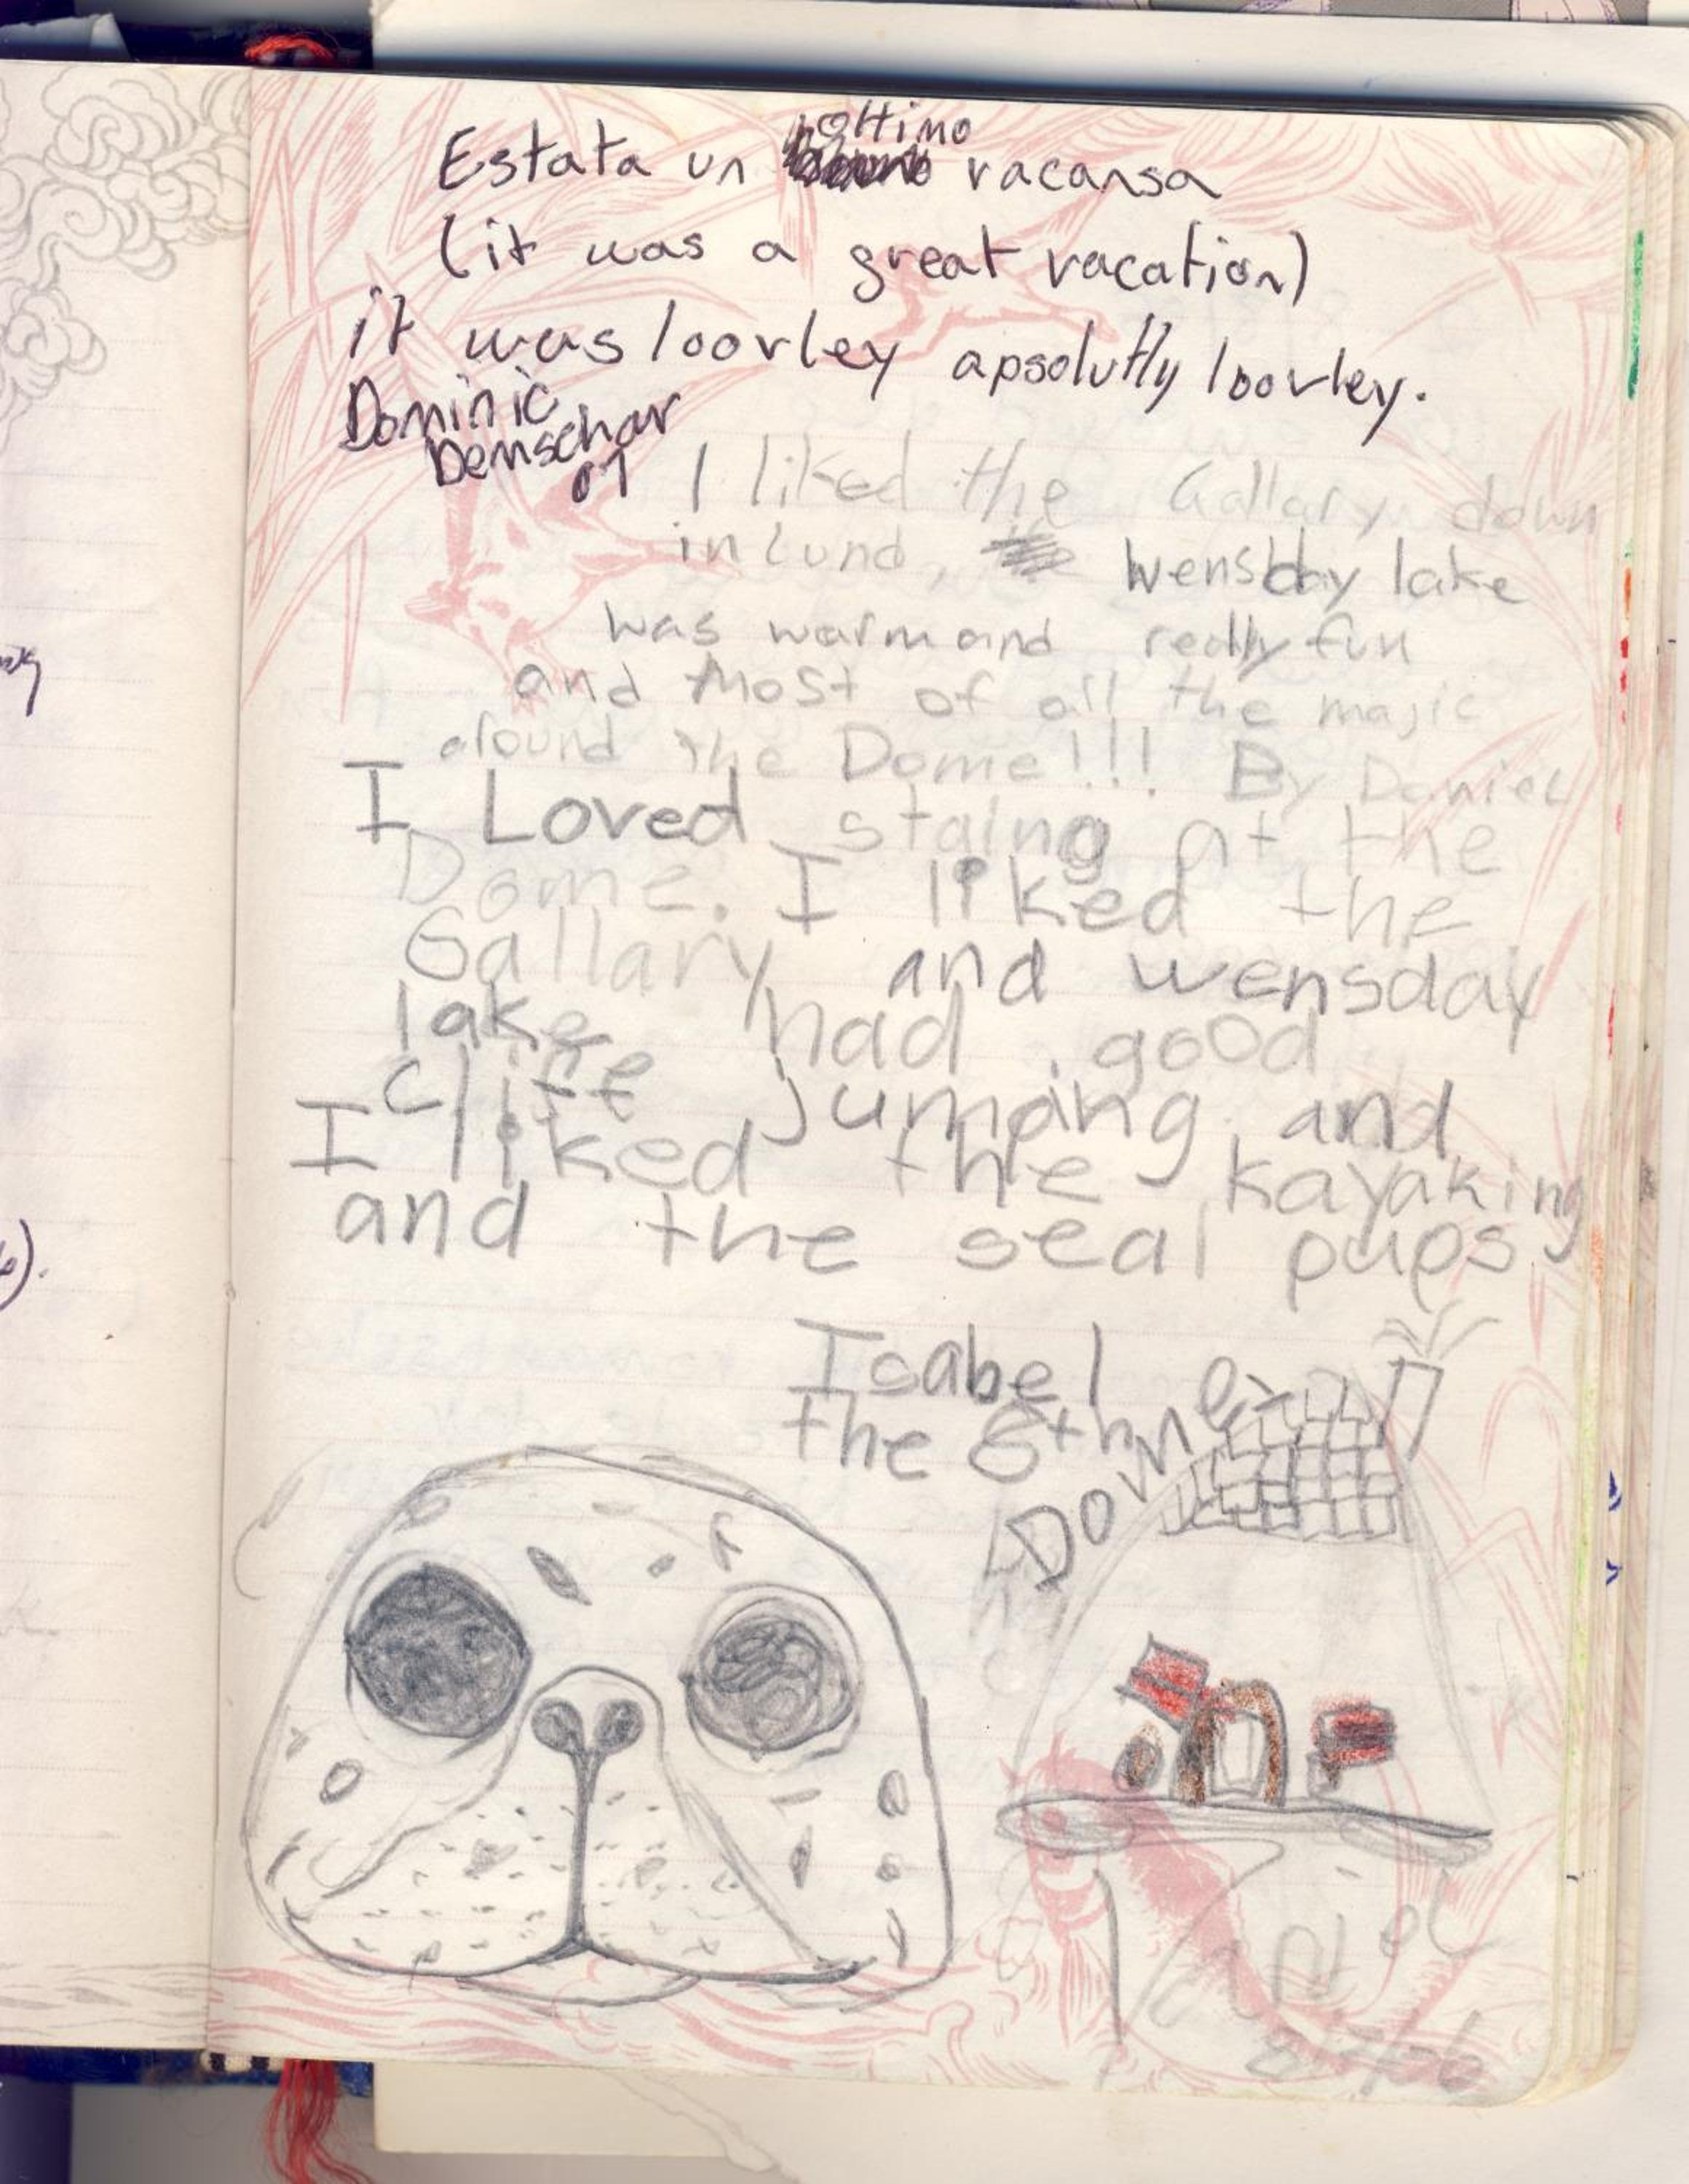 ottimo
Estata un vacansa
(it was a great vacation)
it was loovley apsolutly loovley.
Dominic
Demschar
07
I liked the Gallary down
in Lund, wensday lake
was warm and really fun
and most of all the majic
around the Dome!!! By Daniel
I Loved staing at the
Dome. I liked the
Gallary and wensday
lake had good
cliff Jumping and
I liked the kayaking
and the seal pups
Isabel
the 6th
Dome